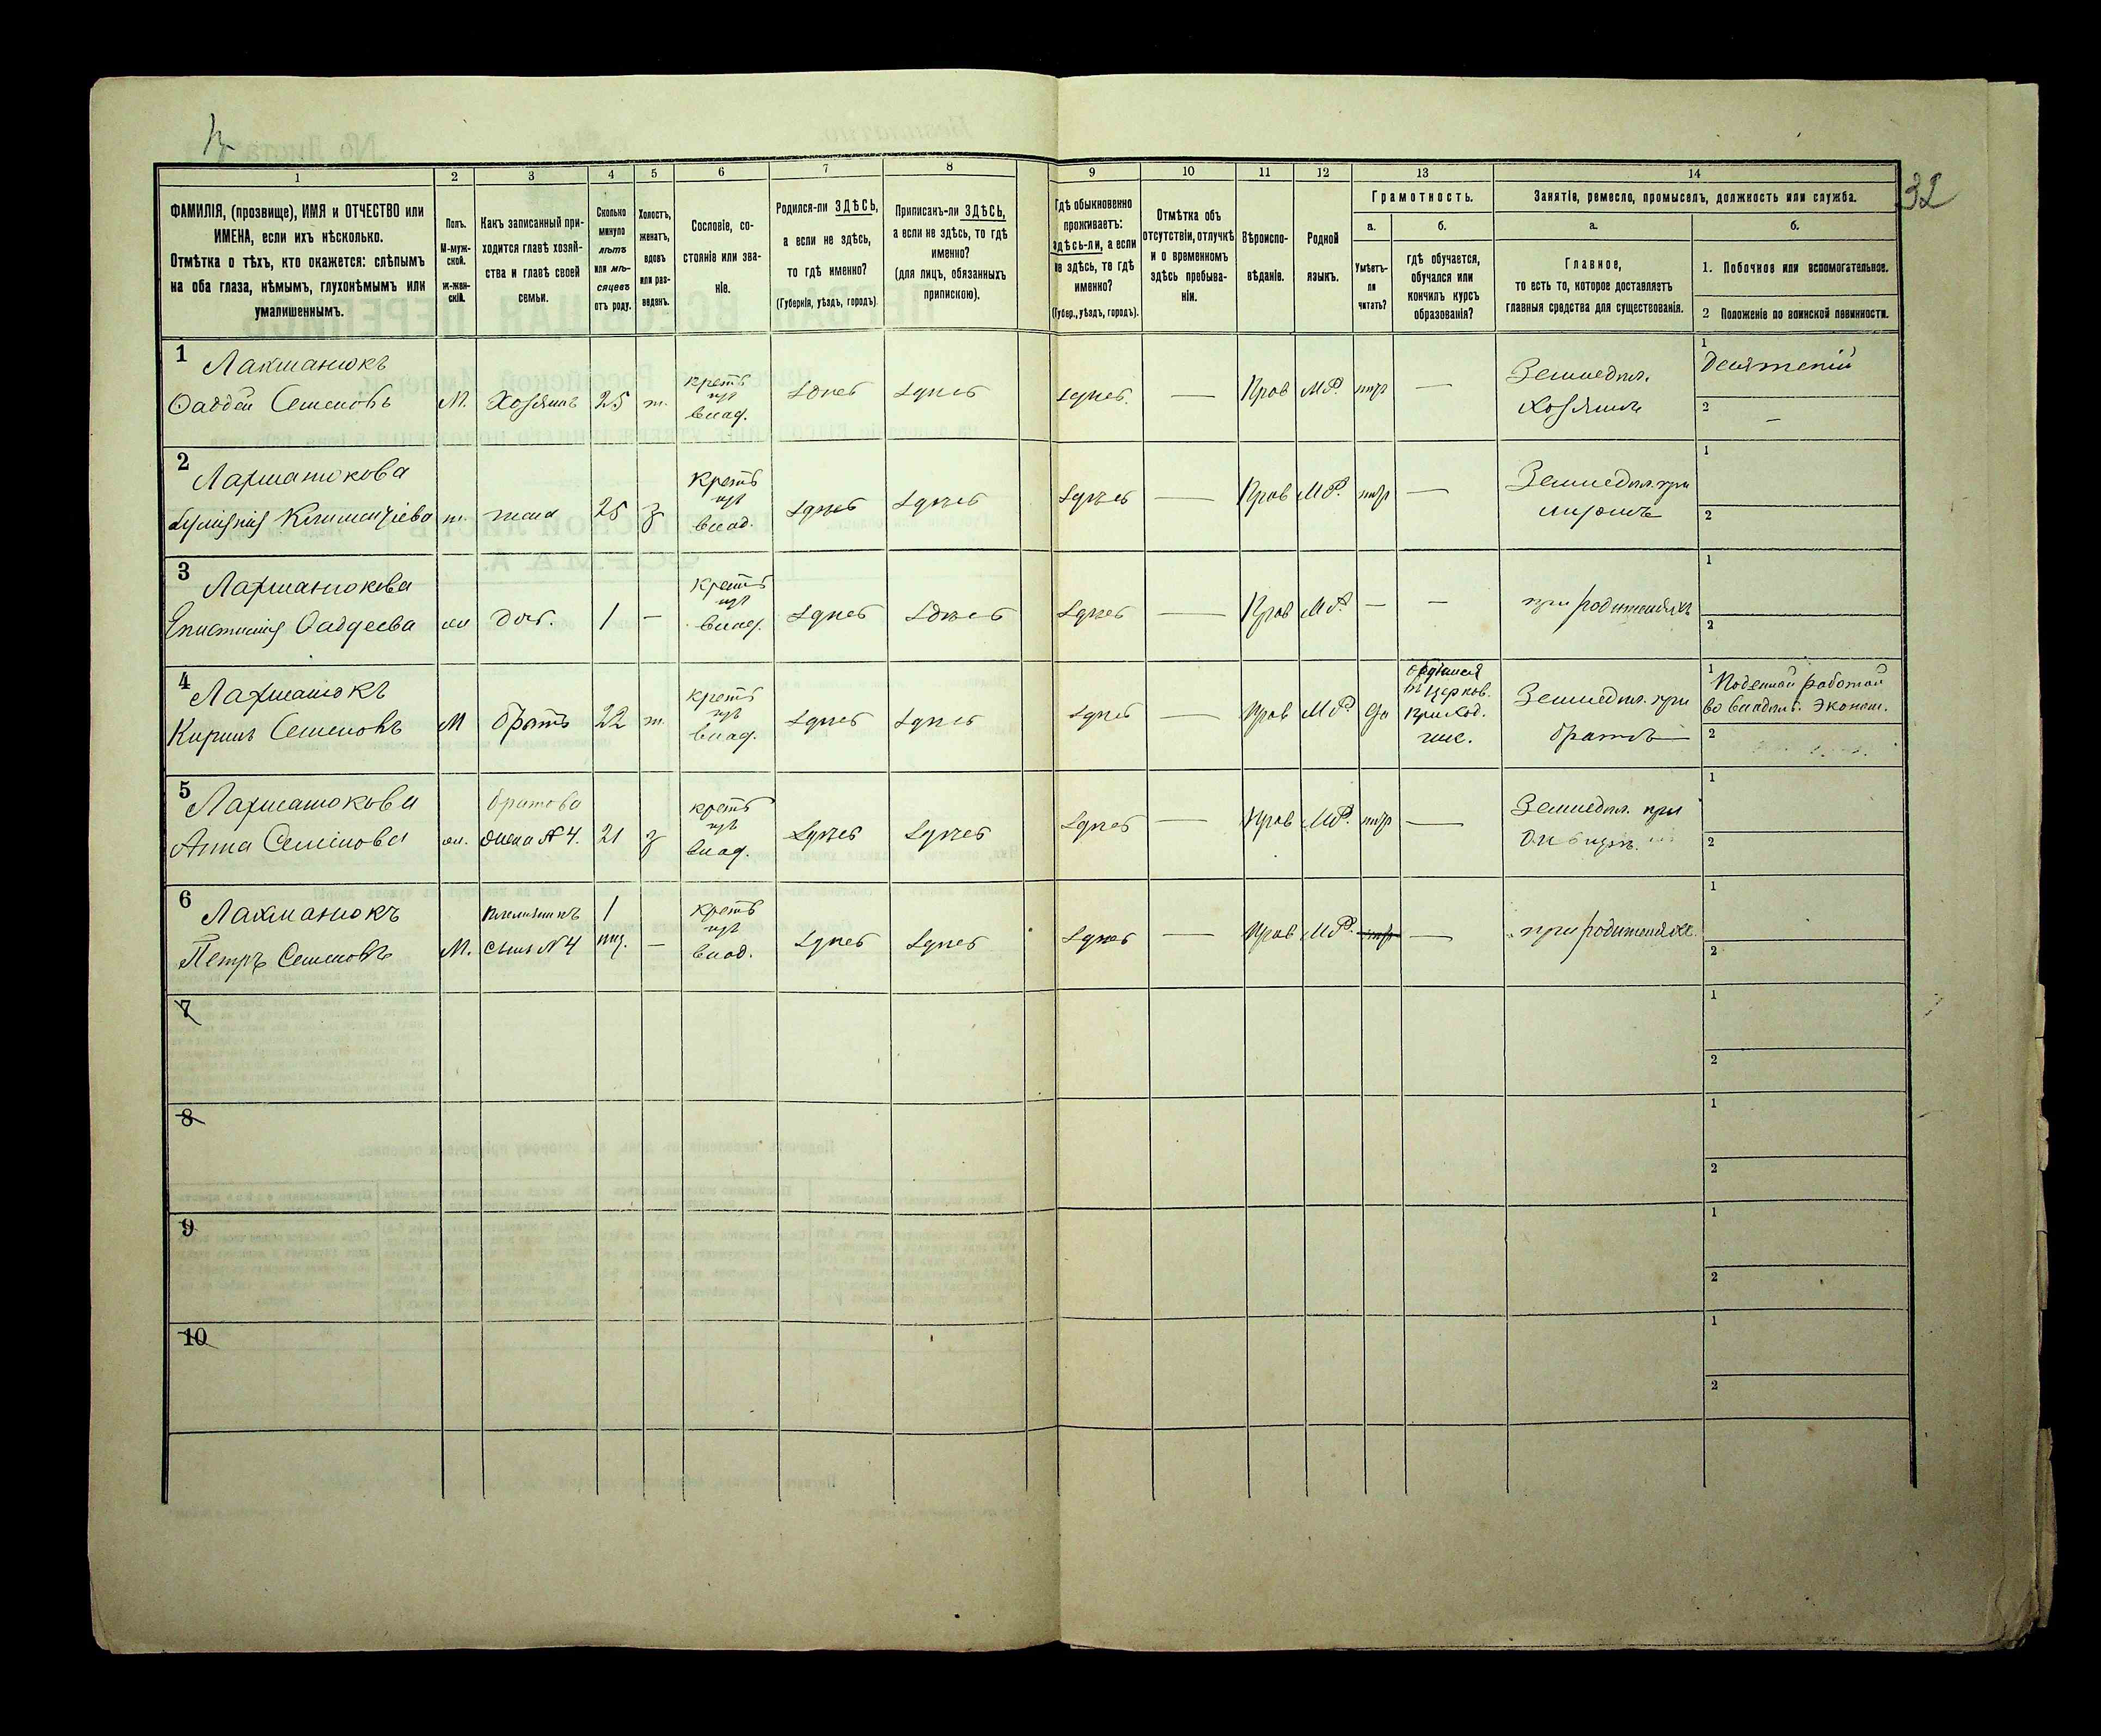 32
1
2
3
4
5
6
7
8
9
10
11
12
13
14
ФАМИЛІЯ, (прозвище), ИМЯ и ОТЧЕСТВО или
ИМЕНА, если ихъ нѣсколько.
Отмѣтка о тѣхъ, кто окажется: слѣпымъ
на оба глаза, нѣмымъ, глухонѣмымъ или
умалишеннымъ.
Полъ.
М-муж-
ской.
ж-жен-
скій.
Какъ записанный при-
ходится главѣ хозяй-
ства и главѣ своей
семьи.
Сколько
минуло
лѣтъ
или мѣ-
сяцевъ
отъ роду.
Холостъ,
женатъ,
вдовъ
или раз-
веденъ.
Сословіе, со-
стояніе или зва-
ніе.
Родился-ли ЗДѢСЬ,
а если не здѣсь,
то гдѣ именно?
(Губернія, уѣздъ, городъ)
Приписанъ-ли ЗДѢСЬ,
а если не здѣсь, то гдѣ
именно?
(для лицъ, обязанныхъ
припискою).
Гдѣ обыкновенно
проживаетъ:
здѣсь-ли, а если
не здѣсь, то гдѣ
именно?
(Губер., уѣздъ, городъ).
Отмѣтка объ
отсутствіи, отлучкѣ
и о временномъ
здѣсь пребыва-
ніи.
Вѣроиспо-
вѣданіе.
Родной
языкъ.
Грамотность.
а.
Умѣетъ-
ли
читать?
б.
гдѣ обучается,
обучался или
кончилъ курсъ
образованія?
Занятія, ремесло, промыселъ, должность или служба.
а.
Главное,
то есть то, которое доставляетъ
главныя средства для существованія.
б.
1. Побочное или вспомогательное.
2 Положеніе по воинской повинности.
1
Лахманюкъ
Фаддей Семеновъ
М.
Хозяинъ
25
ж.
крест
изъ
влад.
здѣсь
здѣсь
здѣсь
—
Прав
МР.
нѣт
—
Земледѣл.
хозяинъ
1
2
—
2
Лахманюкова
Климентіева
ж.
жена
25
з
крест
изъ
влад.
здѣсь
здѣсь
здѣсь
—
Прав
МР.
нѣт
—
Земледѣл. при
мужѣ
1
2
3
Лахманюкова
Фаддеева
ж
доч.
1
—
крест
изъ
влад.
здѣсь
здѣсь
здѣсь
—
Прав
МР.
—
—
при родителяхъ
1
2
4
Лахманюкъ
Кирилъ Семеновъ
М
братъ
22
ж.
крест
изъ
влад.
здѣсь
здѣсь
здѣсь
—
Прав
МР.
да
обучался
въ церков.
приход.
шк.
Земледѣл. при
братѣ
1
Поденной работой
во владѣл. эконом.
2
5
Лахманюкова
Анна Семенова
ж.
братова
жена № 4.
21
з
крест
изъ
влад.
здѣсь
здѣсь
здѣсь
—
Прав
МР.
нѣт
—
Земледѣл. при
1
2
6
Лахманюкъ
Петръ Семеновъ
М.
племянникъ
сынъ № 4
1
мц.
—
крест
изъ
влад.
здѣсь
здѣсь
здѣсь
—
Прав
МР.
нѣт
—
при родителяхъ
1
2
7
1
2
8
1
2
9
1
2
10
1
2